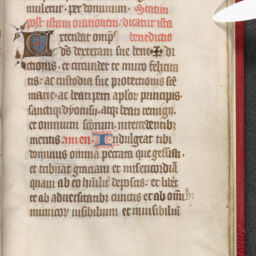 muletur. per dominum. Statim
post istam orationem. dicatur ista
Extendat omps benedictio
ds dexteram sue bene✠di
ctionis. et circundet te muro felicita
tis. ac custodia sue protectionis sce
marie. ac beati petri aplor principis.
sanctiqz dyonisii. atqz beati remigii.
et omnium scorum. intercedentibz
meritis. amen. Indulgeat tibi
dominus omnia peccata que gessisti.
et tribuat graciam et misericordiam
quam ab eo humilit deposcis. et liber&
te ab adversitatibz cunctis et ab omibz
inimicor visibilium et invisibilium